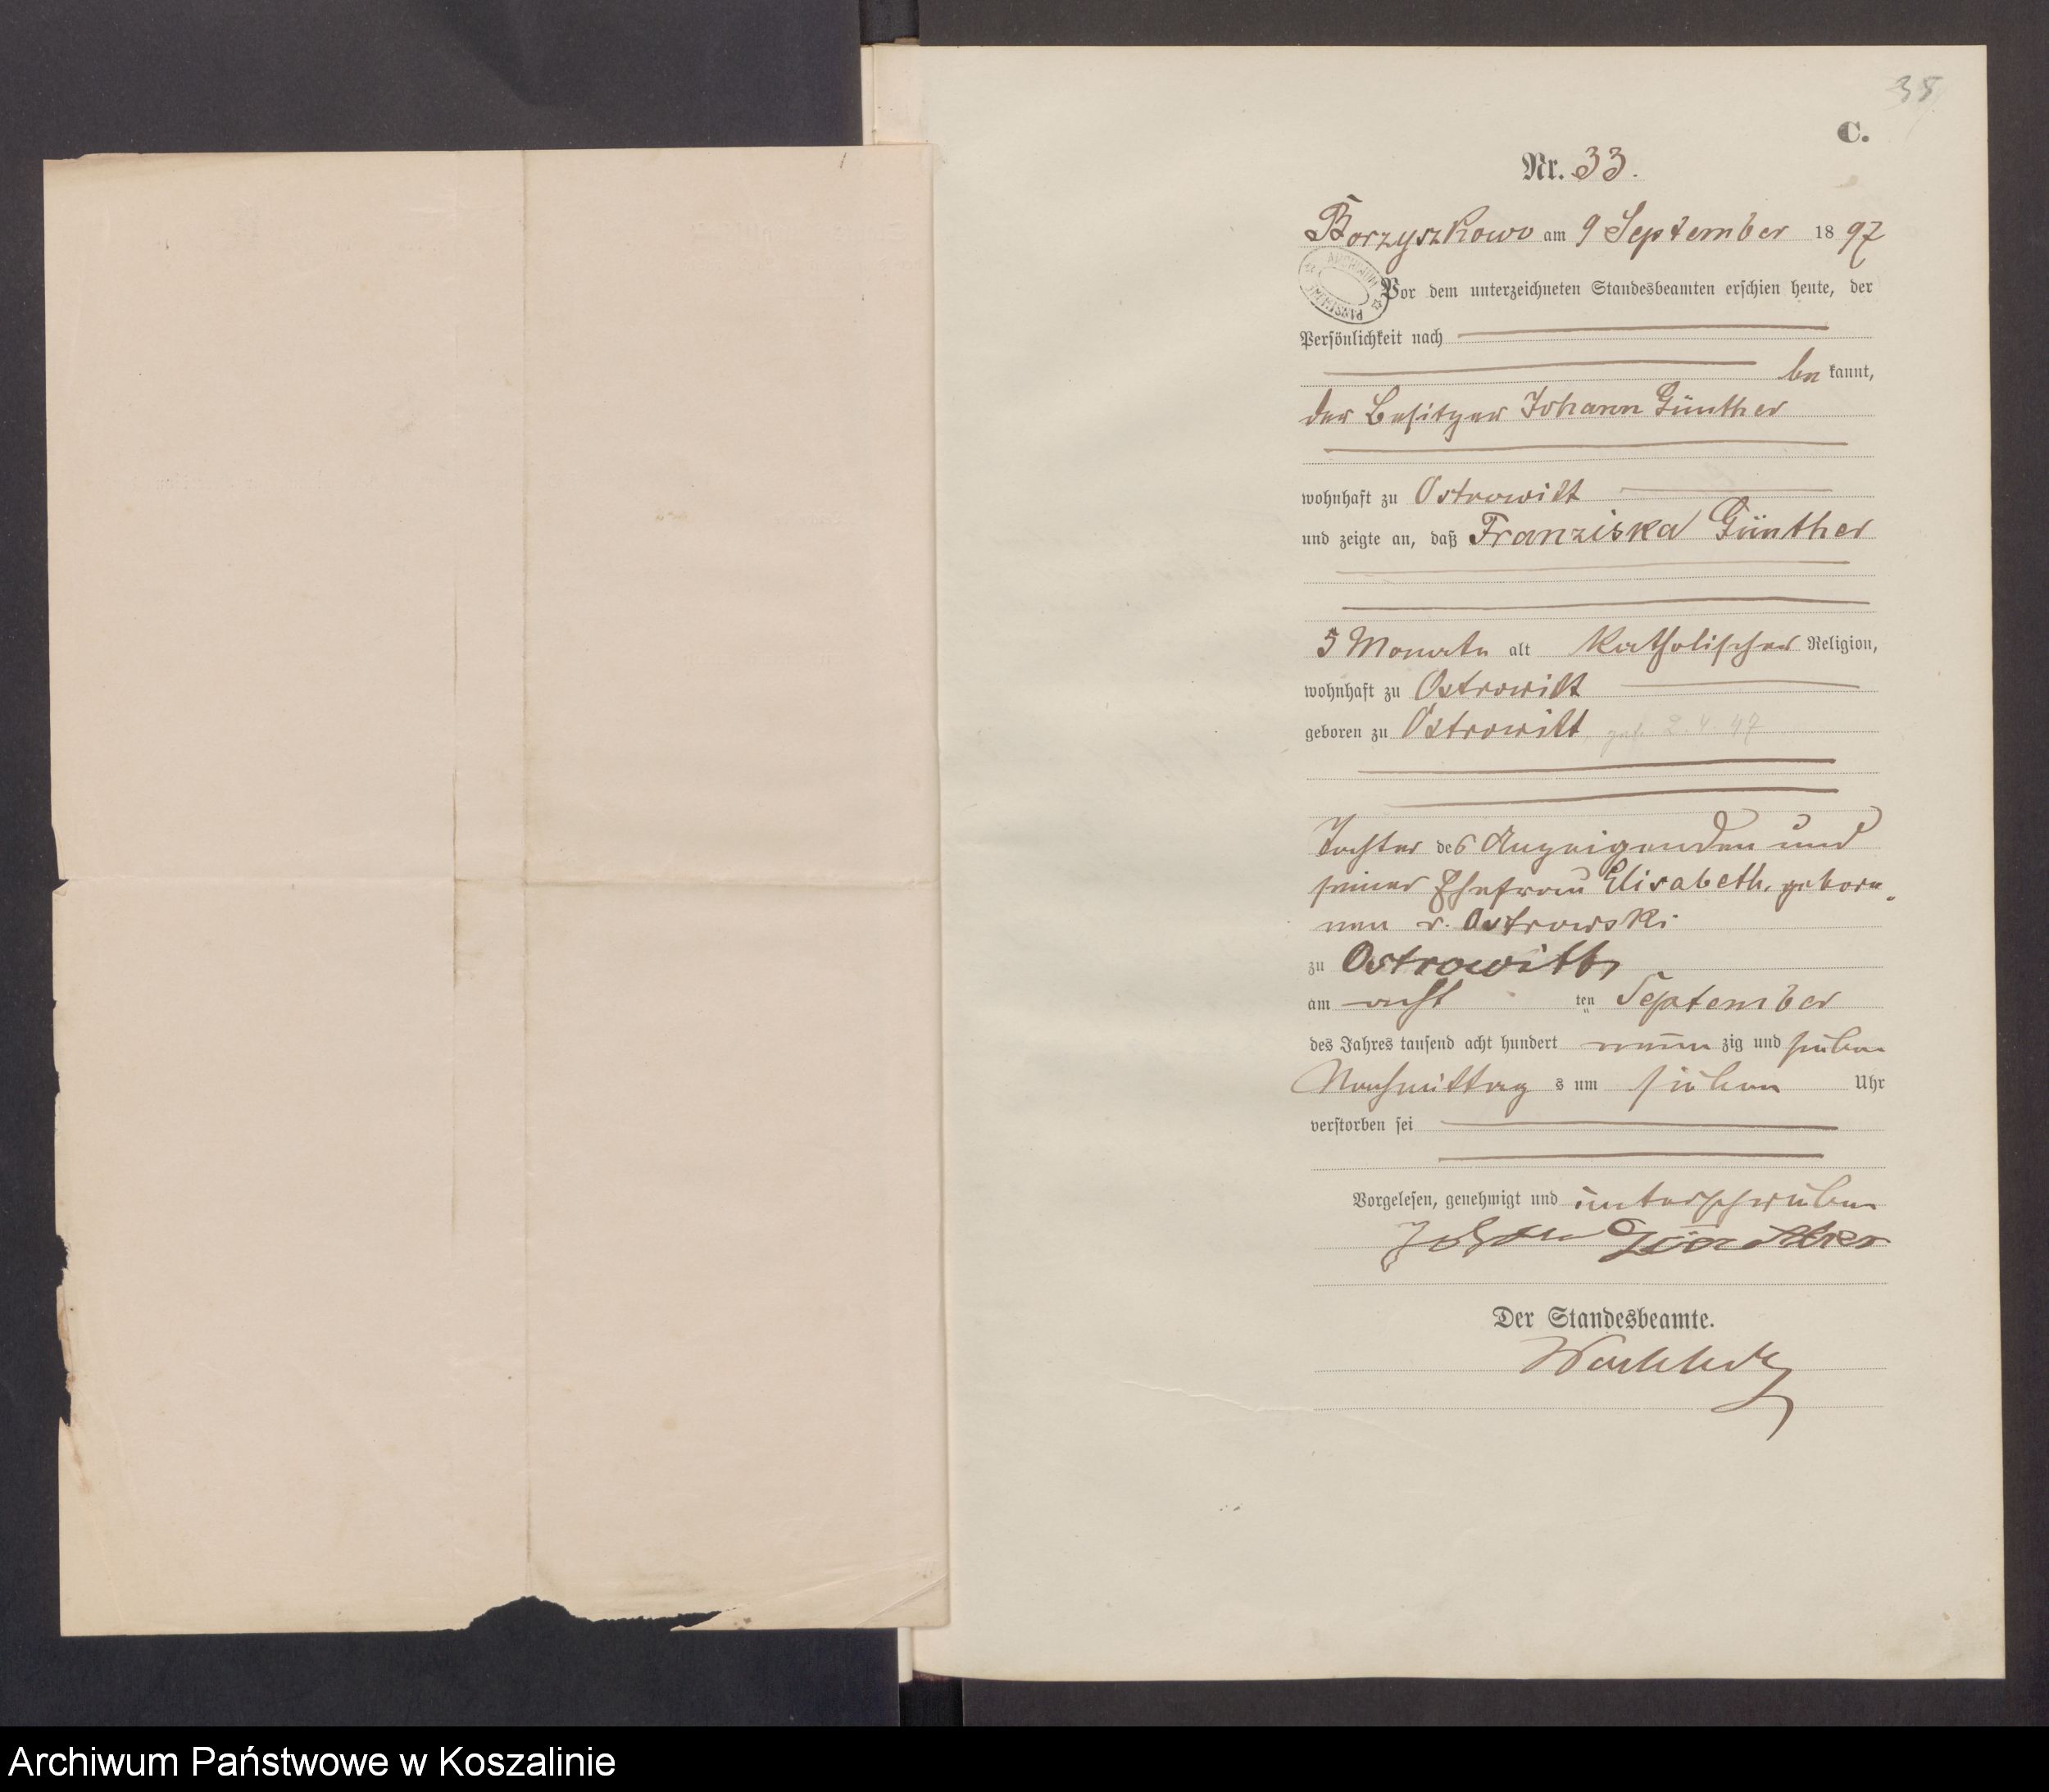 35
C.
Nr. 33.
Borzyszkowo am 9 September 1897
ARCHIWUM PAŃSTWOWE
Vor dem unterzeichneten Standesbeamten erschien heute, der
Persönlichkeit nach
be kannt,
der Besitzer Johann Günther
wohnhaft zu Ostrowitt
und zeigte an, daß Franziska Günther
5 Monate alt katholischer Religion,
wohnhaft zu Ostrowitt
geboren zu Ostrowitt, geb. 2.4.97
Tochter des Anzeigenden und
seiner Ehefrau Elisabeth, gebore-
nen v. Ostrowski
zu Ostrowitt,
am acht ten September
des Jahres tausend acht hundert neun zig und sieben
Nachmittag s um sieben Uhr
verstorben sei
Vorgelesen, genehmigt und unterschrieben
Johann Günther
Der Standesbeamte.
Archiwum Państwowe w Koszalinie